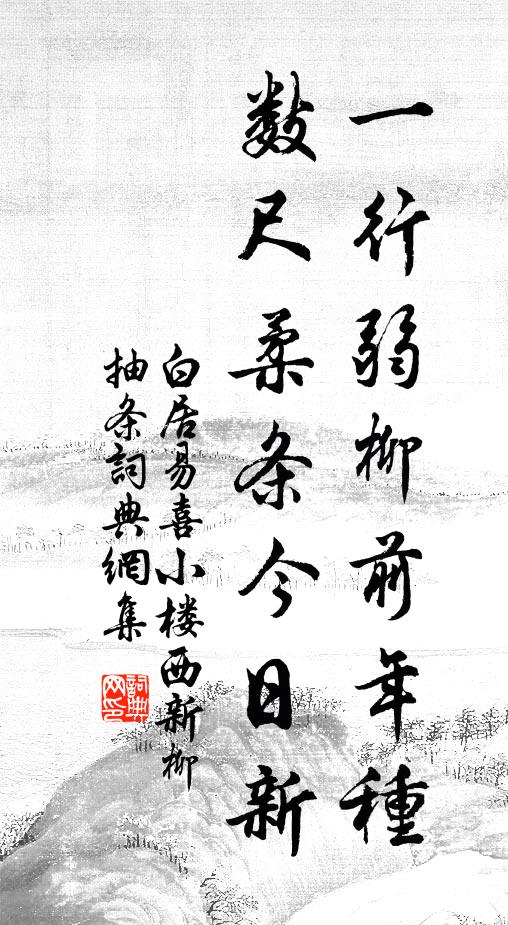 一行弱柳前年種
數尺柔条今日新
白居易喜小楼西新柳
抽条詞典網集
詞典
网印